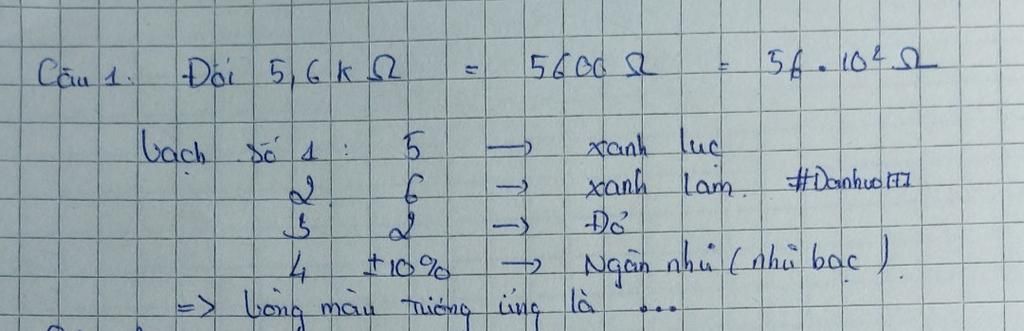 Câu 1. Đổi 5,6 k Ω = 5600 Ω = 56 . 10² Ω
Vạch số 1 : 5 → xanh lục
2 6 → xanh lam. #Danhvo177
3 2 → Đỏ
4 ±10% → Ngân nhũ (nhũ bạc).
=> Vòng màu tương ứng là ...